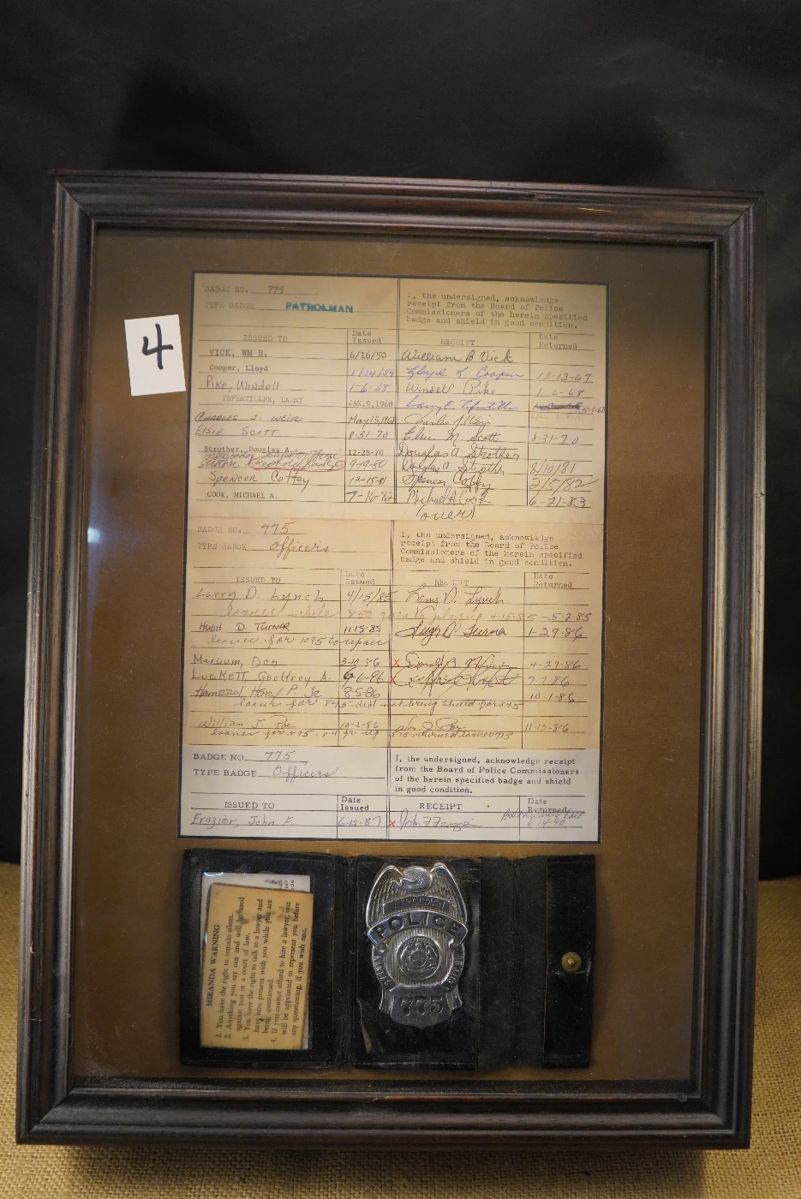 4
BADGE NO. 775
TYPE BADGE PATROLMAN
I, the undersigned, acknowledge
receipt from the Board of Police
Commissioners of the herein specified
badge and shield in good condition.
ISSUED TO Date Issued RECEIPT Date Returned
VICK, WM B. 6/26/50 William B Vick
Cooper, Lloyd 1/14/54 Lloyd L Cooper 12-13-67
Pike, Windell 1-6-68 Windell Pike 1-6-68
JAN. 9, 1968
CHARLES J. WEIR May 15, 1968
ELSIE SCOTT 8-31-70 Elsie M. Scott 8 31-70
Strother, Douglas A. 12-28-70 Douglas A Strother
9-19-80 Douglas A Strother 8/10/81
Spencer Coffey 12-15-81 Spencer Coffey 2/5/82
COOK, MICHAEL A. 7-16-82 Michael A Cook 6-21-83
(over)
BADGE NO. 775
TYPE BADGE Officers
I, the undersigned, acknowledge
receipt from the Board of Police
Commissioners of the herein specified
badge and shield in good condition.
ISSUED TO Date Issued RECEIPT Date Returned
Larry D. Lynch 4/15/85 Larry D. Lynch
loaner while 850 4-15-85 - 5-2-85
HUGH D TURNER 11-15-85 Hugh D Turner 1-29-86
loaner for 1095 to repair
Marcum, Don 3-10-86 x 4-29-86
LUCKETT, Geoffrey A. 6-6-86 x 7-2-86
8-5-86 10-1-86
loaner for did not bring shield for 845
William J. Roe 10-2-86 Wm J. Roe
loaner for 575 returned loaner 775
BADGE NO. 775
TYPE BADGE Officers
I, the undersigned, acknowledge receipt
from the Board of Police Commissioners
of the herein specified badge and shield
in good condition.
ISSUED TO Date Issued RECEIPT Date Returned
Frazier, John F. 6-12-87 x John F Frazier
MIRANDA WARNING
1. You have the right to remain silent.
2. Anything you say can and will be used
against you in a court of law.
3. You have the right to talk to a lawyer and
have him present with you while you are
being questioned.
4. If you cannot afford to hire a lawyer, one
will be appointed to represent you before
any questioning, if you wish one.
POLICE
775